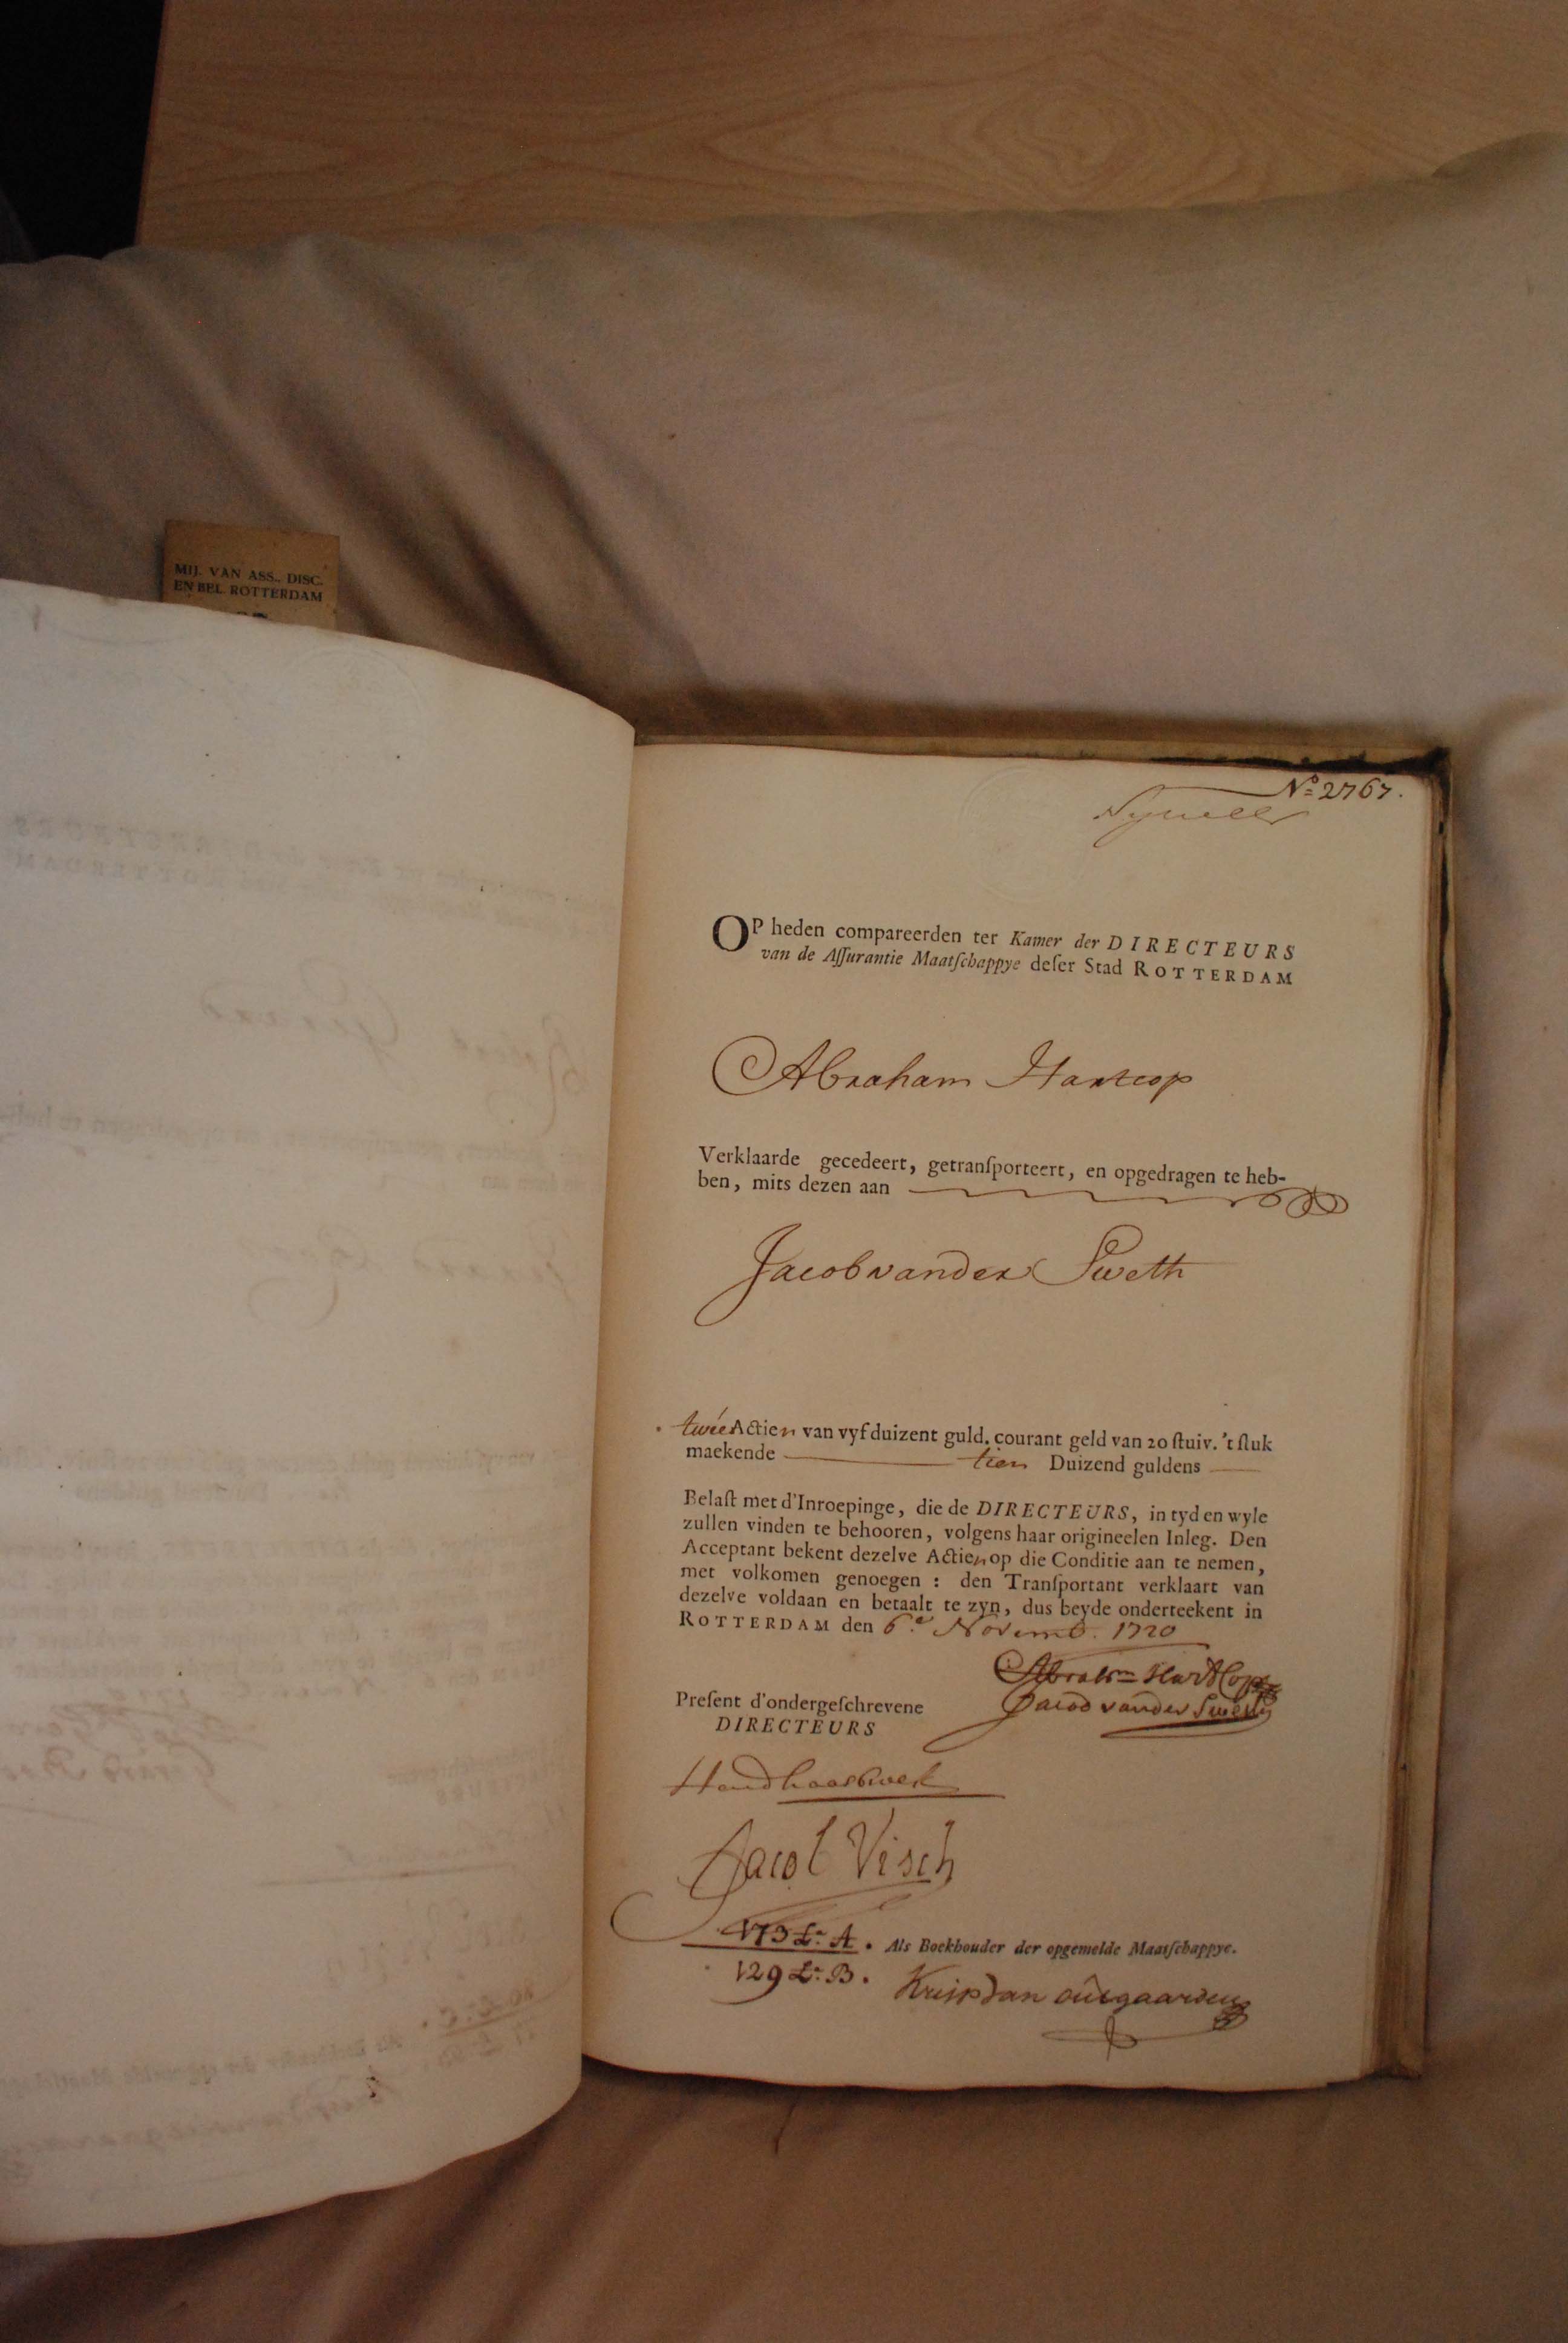 MIJ. VAN ASS., DISC.
EN BEL. ROTTERDAM
Nº 2767.
OP heden compareerden ter Kamer der DIRECTEURS
van de Aſſurantie Maatſchappye deſer Stad ROTTERDAM
Abraham Hartcop
Verklaarde gecedeert, getranſporteert, en opgedragen te heb-
ben, mits dezen aan
Jacob vander Sweth
twée Actien van vyfduizent guld. courant geld van 20 ſtuiv. 't ſtuk
maekende tien Duizend guldens
Belaſt met d'Inroepinge, die de DIRECTEURS, in tyd en wyle
zullen vinden te behooren, volgens haar origineelen Inleg. Den
Acceptant bekent dezelve Actien op die Conditie aan te nemen,
met volkomen genoegen : den Tranſportant verklaart van
dezelve voldaan en betaalt te zyn, dus beyde onderteekent in
ROTTERDAM den 6.e Novemb. 1720
Abrahm HartCop
Jacob vander Sweth
Preſent d'ondergeſchrevene
DIRECTEURS
Jacob Visch
173 Lr. A. Als Boekhouder der opgemelde Maatſchappye.
129 Lr. B.